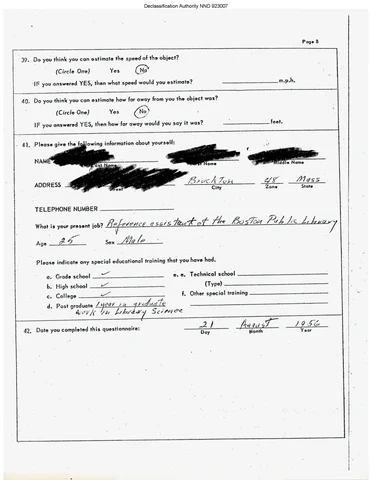 Declassification Authority NND 923007
Page 8
39. Do you think you can estimate the speed of the object?
(Circle One) Yes No
IF you answered YES, then what speed would you estimate? m.p.h.
40. Do you think you can estimate how far away from you the object was?
(Circle One) Yes No
IF you answered YES, then how far away would you say it was? feet.
41. Please give the following information about yourself:
NAME
Last Name First Name Middle Name
ADDRESS Brockton 48 Mass
Street City Zone State
TELEPHONE NUMBER
What is your present job? Reference assistant at the Boston Public Library
Age 25 Sex Male
Please indicate any special educational training that you have had.
a. Grade school ✓ e. e. Technical school
b. High school ✓ (Type)
c. College ✓ f. Other special training
d. Post graduate 1 year in graduate
work in Library Science
42. Date you completed this questionnaire: 21 August 1956
Day Month Year